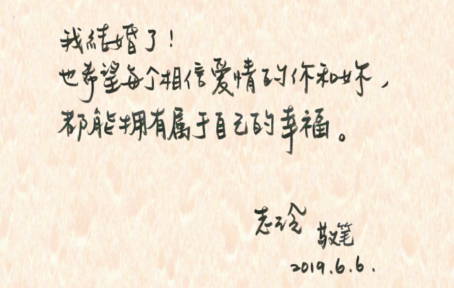 我结婚了！
也希望每个相信爱情的你和妳，
都能拥有属于自己的幸福。
志玲 敬笔
2019.6.6.